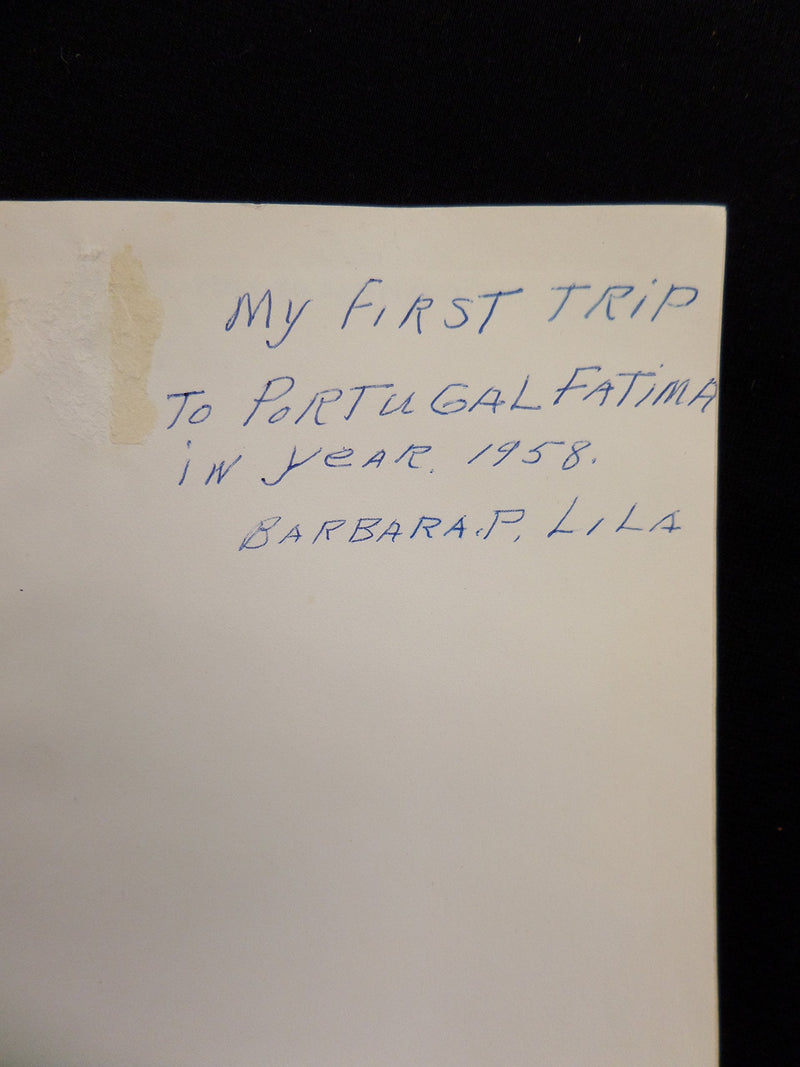 My FiRST TRiP
To PoRTUGAL FATiMA
iN yeAR. 1958.
BARBARA.P. LiLA